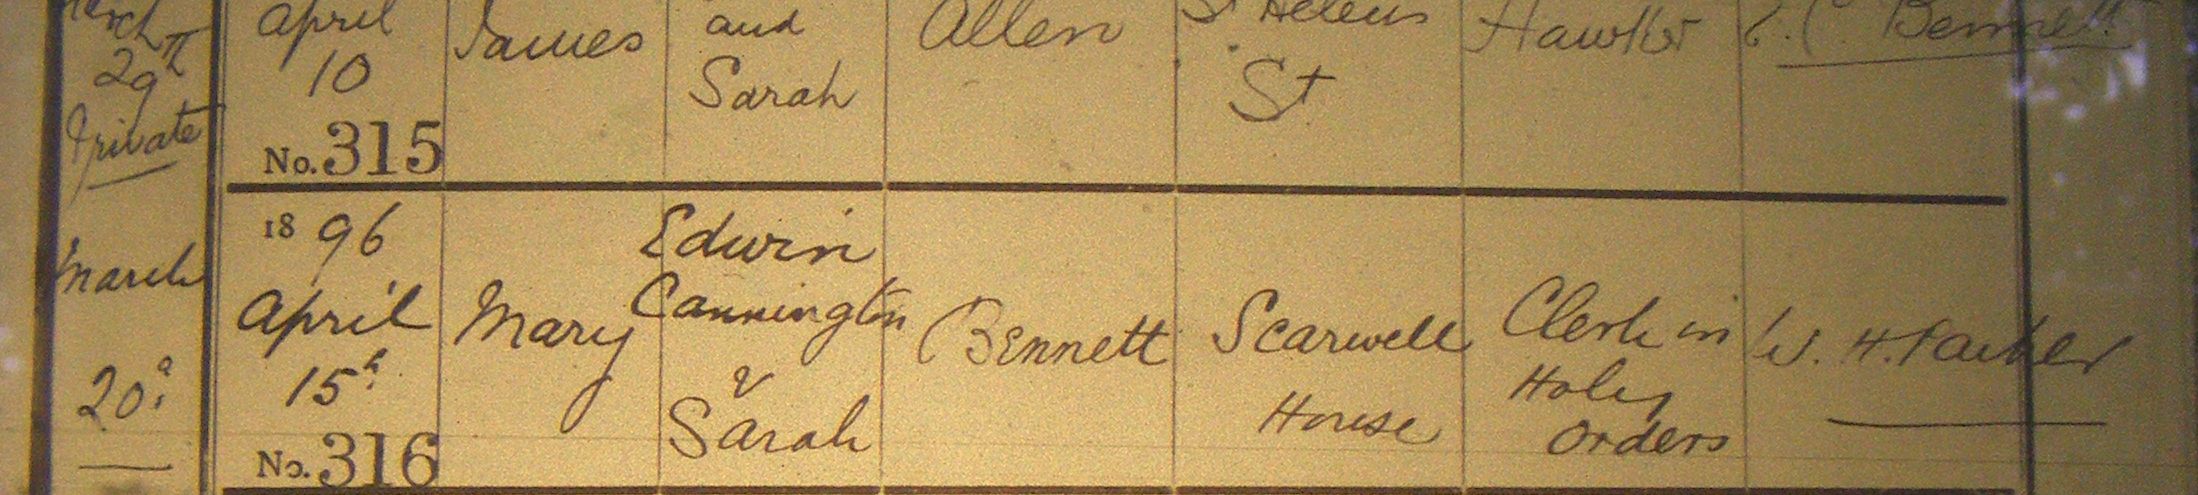 March
29th
Private
April
10
No. 315
James
and
Sarah
Allen
St Helens
St
Hawker
E. C. Bennett
March
20th
1896
April
15th
No. 316
Mary
Edwin
Cannington
&
Sarah
Bennett
Scarwell
House
Clerk in
Holy
Orders
W. H. Parker